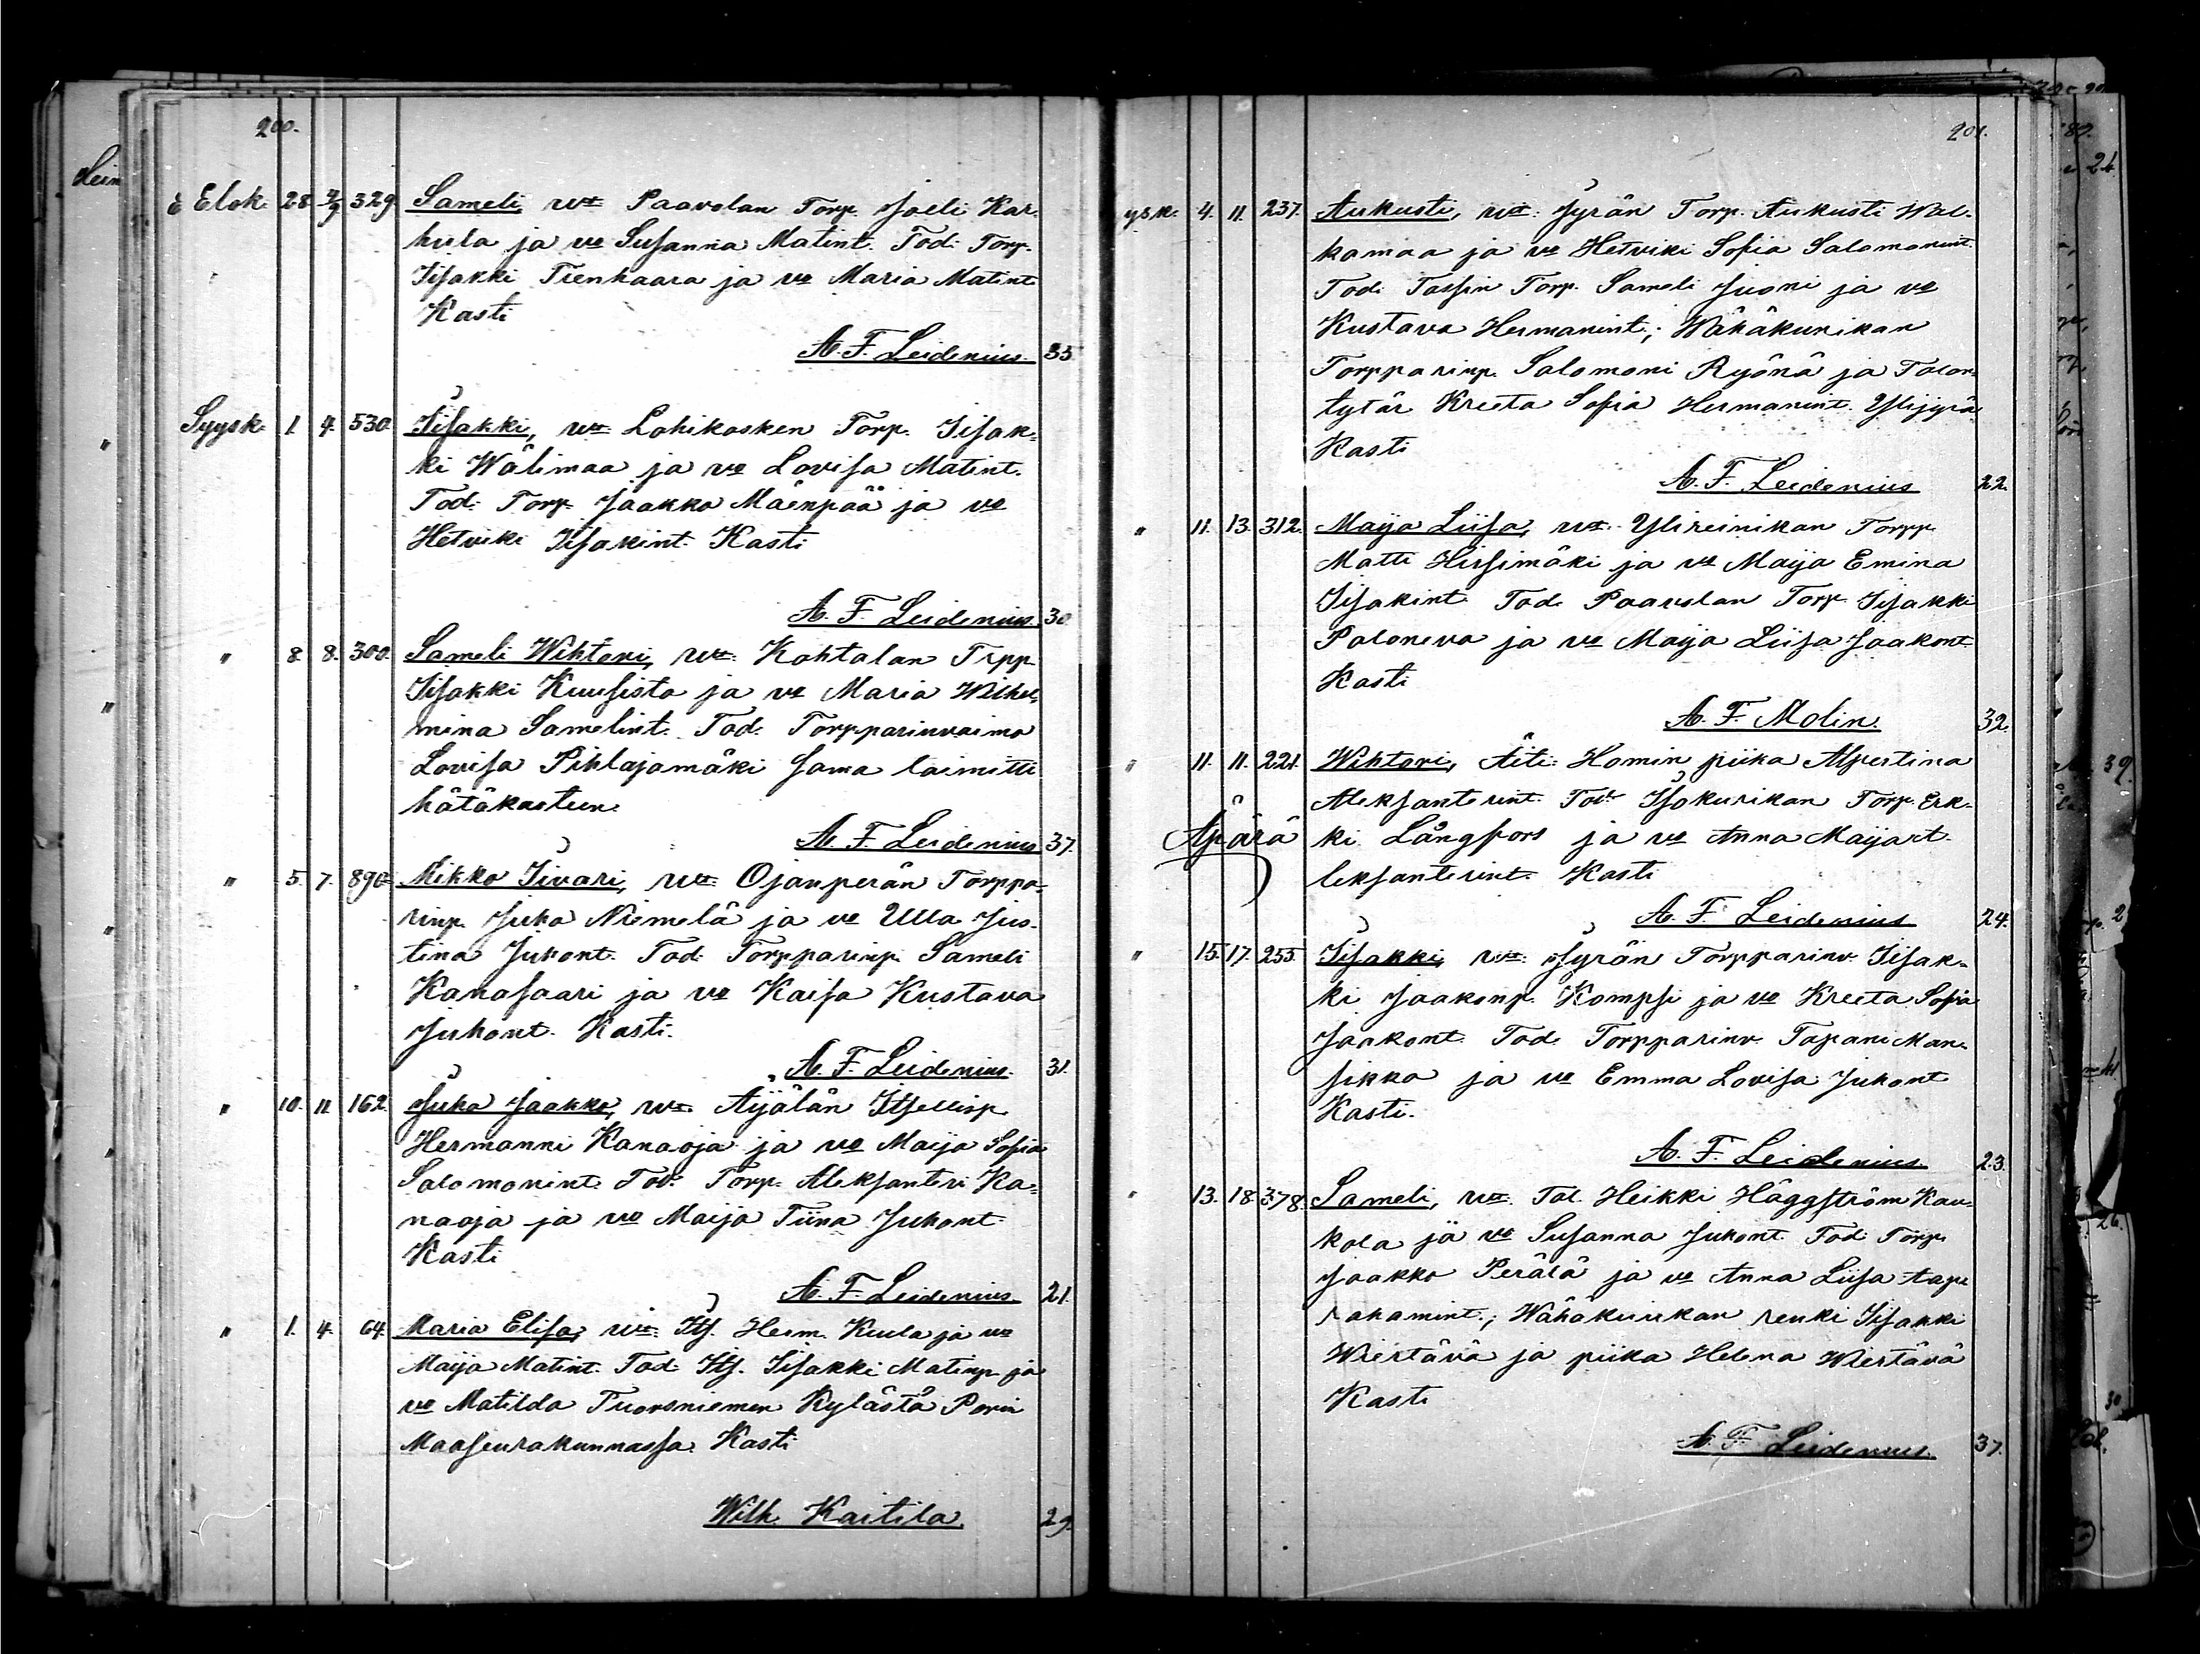 200.
Elok. 28. 2/9 329 Sameli, vt: Paavolan Torp. Joeli Kar-
hula ja vo Susanna Matint. Tod: Torp.
Iisakki Tienhaara ja vo Maria Matint.
Kasti
A. F. Leidenius. 35.
Syysk. 1. 4. 530. Iisakki, vt: Lohikosken Torp. Iisak-
ki Wälimaa ja vo Lovisa Matint.
Tod: Torp. Jaakko Mäenpää ja vo
Hetviki Iisakint. Kasti
A. F. Leidenius. 30.
" 8. 8. 300. Sameli Wihtori, vt: Kohtalan Trpp.
Iisakki Kuusisto ja vo Maria Wilhel-
mina Samelint. Tod: Torpparinvaimo
Lovisa Pihlajamäki sama toimitti
hätäkasteen.
A. F. Leidenius 37.
" 5. 7. 890. Mikko Iivari, vt: Ojanperän Torppa-
rinp. Juha Niemelä ja vo Ulla Jus-
tina Juhont. Tod: Torpparinp. Sameli
Kanasaari ja vo Kaisa Kustava
Juhont. Kasti.
A. F. Leidenius. 31.
" 10. 11. 162. Juho Jaakko, vt: Äijälän Itsellisp.
Hermanni Kanaoja ja vo Maija Sofia
Salomonint. Tod: Torp. Aleksanteri Ka-
naoja ja vo Maija Tiina Juhont.
Kasti
A. F. Leidenius. 21.
" 1. 4. 64. Maria Elisa, vt: Its. Herm. Kuula ja vo
Maija Matint. Tod: Its. Iisakki Matinp. ja
vo Matilda Tuorsniemen Kylästä Porin
Maaseurakunnassa. Kasti
Wilh. Kaitila. 29.
201.
ysk. 4. 11. 237. Aukusti, vt: Jyrän Torp. Aukusti Wal-
kamaa ja vo Hetviki Sofia Salomonint.
Tod: Tassin Torp. Sameli Juoni ja vo
Kustava Hermanint.; Wähäkurikan
Torpparinp. Salomoni Ryönä ja Talon-
tytär Kreeta Sofia Hermanint. Ylijyrä
Kasti
A. F. Leidenius 22.
" 11. 13. 312. Maija Liisa, vt: Ylireinikan Torpp.
Matti Hirsimäki ja vo Maija Emina
Iisakint. Tod: Paavolan Torp. Iisakki
Paloneva ja vo Maija Liisa Jaakont.
Kasti
A. F. Molin. 32.
" 11. 11. 221. Wihtori, Äiti: Homin piika Alpertina
Aleksanterint. Tod: Isokurikan Torp. Erk-
Äpärä ki Långfors ja vo Anna Maija A-
leksanterint. Kasti
A. F. Leidenius 24.
" 15. 17. 255. Iisakki, vt: Jyrän Torpparinv. Iisak-
ki Jaakonp. Kompsi ja vo Kreeta Sofia
Jaakont. Tod: Torpparinv. Tapani Man-
sikka ja vo Emma Lovisa Juhont.
Kasti.
A. F. Leidenius. 23.
" 13. 18. 378. Sameli, vt: Tal. Heikki Häggström Kau-
kola ja vo Susanna Juhont. Tod: Torp.
Jaakko Perälä ja vo Anna Liisa Aap-
rahamint.; Wähäkurikan renki Iisakki
Wiertävä ja piika Helena Wiertävä
Kasti
A. F. Leidenius. 37.